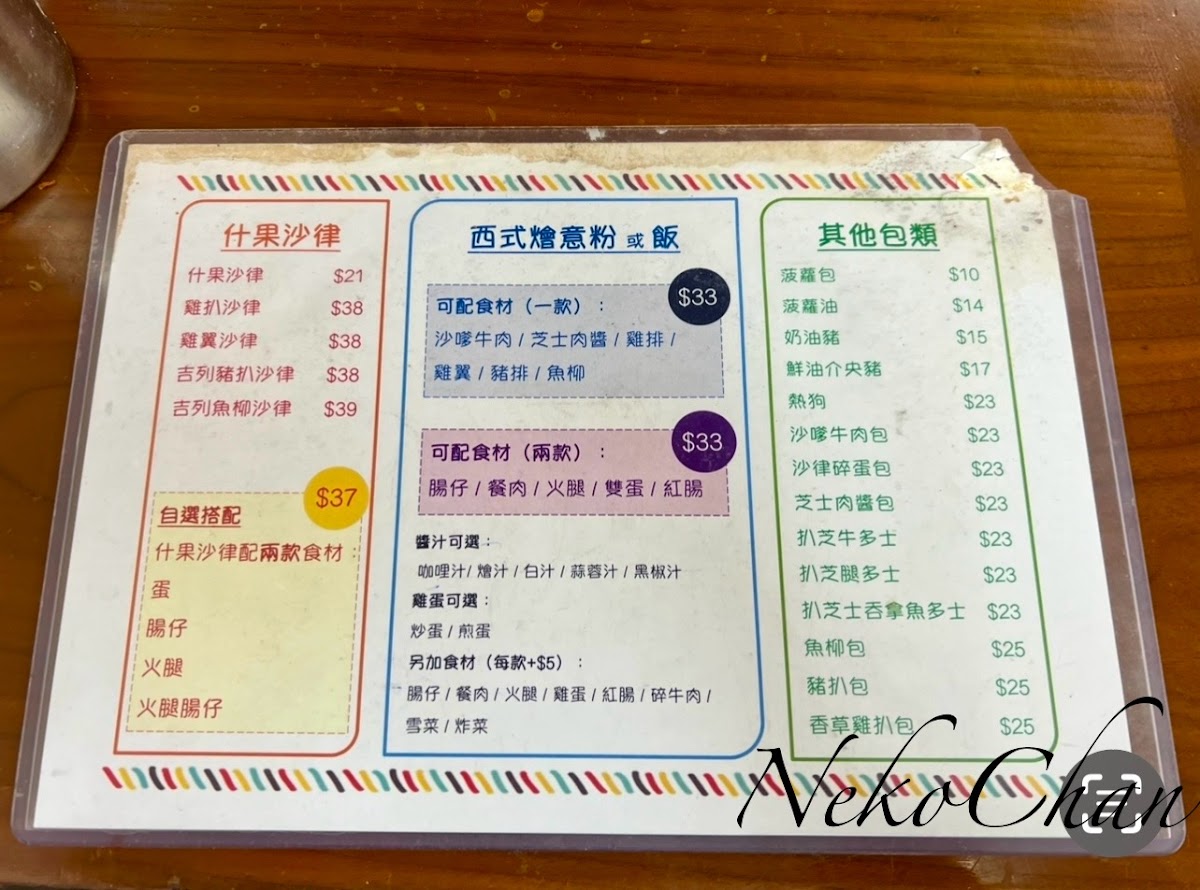 什果沙律
什果沙律 $21
雞扒沙律 $38
雞翼沙律 $38
吉列豬扒沙律 $38
吉列魚柳沙律 $39
$37
自選搭配
什果沙律配兩款食材：
蛋
腸仔
火腿
火腿腸仔
西式燴意粉 或 飯
$33
可配食材（一款）：
沙嗲牛肉 / 芝士肉醬 / 雞排 /
雞翼 / 豬排 / 魚柳
$33
可配食材（兩款）：
腸仔 / 餐肉 / 火腿 / 雙蛋 / 紅腸
醬汁可選：
咖哩汁/ 燴汁 / 白汁 / 蒜蓉汁 / 黑椒汁
雞蛋可選：
炒蛋 / 煎蛋
另加食材（每款+$5）：
腸仔 / 餐肉 / 火腿 / 雞蛋 / 紅腸 / 碎牛肉 /
雪菜 / 炸菜
其他包類
菠蘿包 $10
菠蘿油 $14
奶油豬 $15
鮮油介央豬 $17
熱狗 $23
沙嗲牛肉包 $23
沙律碎蛋包 $23
芝士肉醬包 $23
扒芝牛多士 $23
扒芝腿多士 $23
扒芝士吞拿魚多士 $23
魚柳包 $25
豬扒包 $25
香草雞扒包 $25
NekoChan